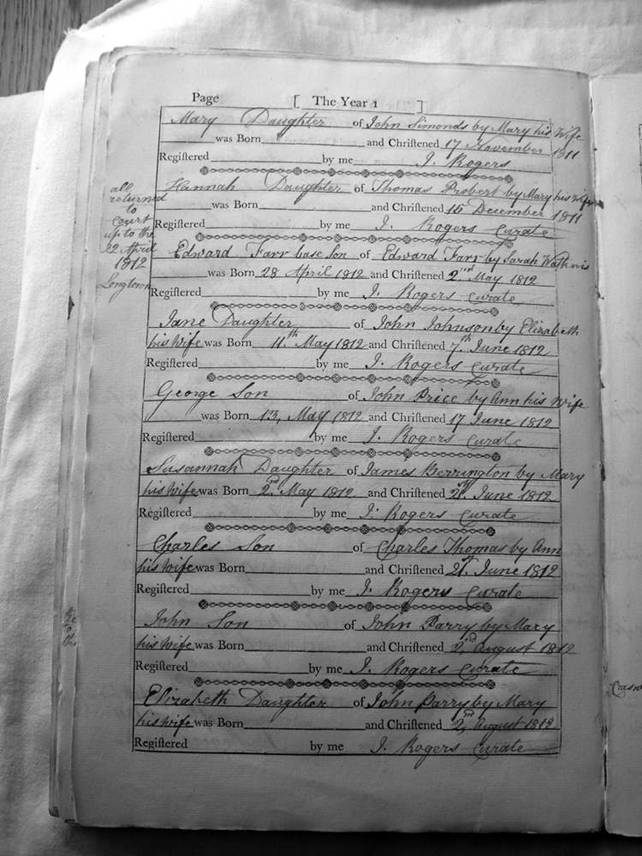 Page [ The Year 1 ]
Mary Daughter of John Simonds by Mary his Wife
was Born and Chriſtened 17 November 1811
Regiſtered by me J. Rogers
Hannah Daughter of Thomas Probert by Mary his Wife
was Born and Chriſtened 15 December 1811
Regiſtered by me J. Rogers Curate
all
returned
to
Court
up to the
22 April
1812
Longtown
Edward Farr base Son of Edward Farr by Sarah
was Born 28 April 1812 and Chriſtened 2nd May 1812
Regiſtered by me J. Rogers Curate
Jane Daughter of John Johnson by Elizabeth
his Wife was Born 11th May 1812 and Chriſtened 7th June 1812
Regiſtered by me J. Rogers Curate
George Son of John Price by Ann his Wife
was Born 13, May 1812 and Chriſtened 17 June 1812
Regiſtered by me J. Rogers Curate
Susannah Daughter of James Berrington by Mary
his Wife was Born 2d May 1812 and Chriſtened June 1812
Regiſtered by me J. Rogers Curate
Charles Son of Charles Thomas by Ann
his Wife was Born and Chriſtened 21st June 1812
Regiſtered by me J. Rogers Curate
John Son of John Parry by Mary
his Wife was Born and Chriſtened 2nd August 1812
Regiſtered by me J. Rogers Curate
Elizabeth Daughter of John Parry by Mary
his Wife was Born and Chriſtened 2d August 1812
Regiſtered by me J. Rogers Curate